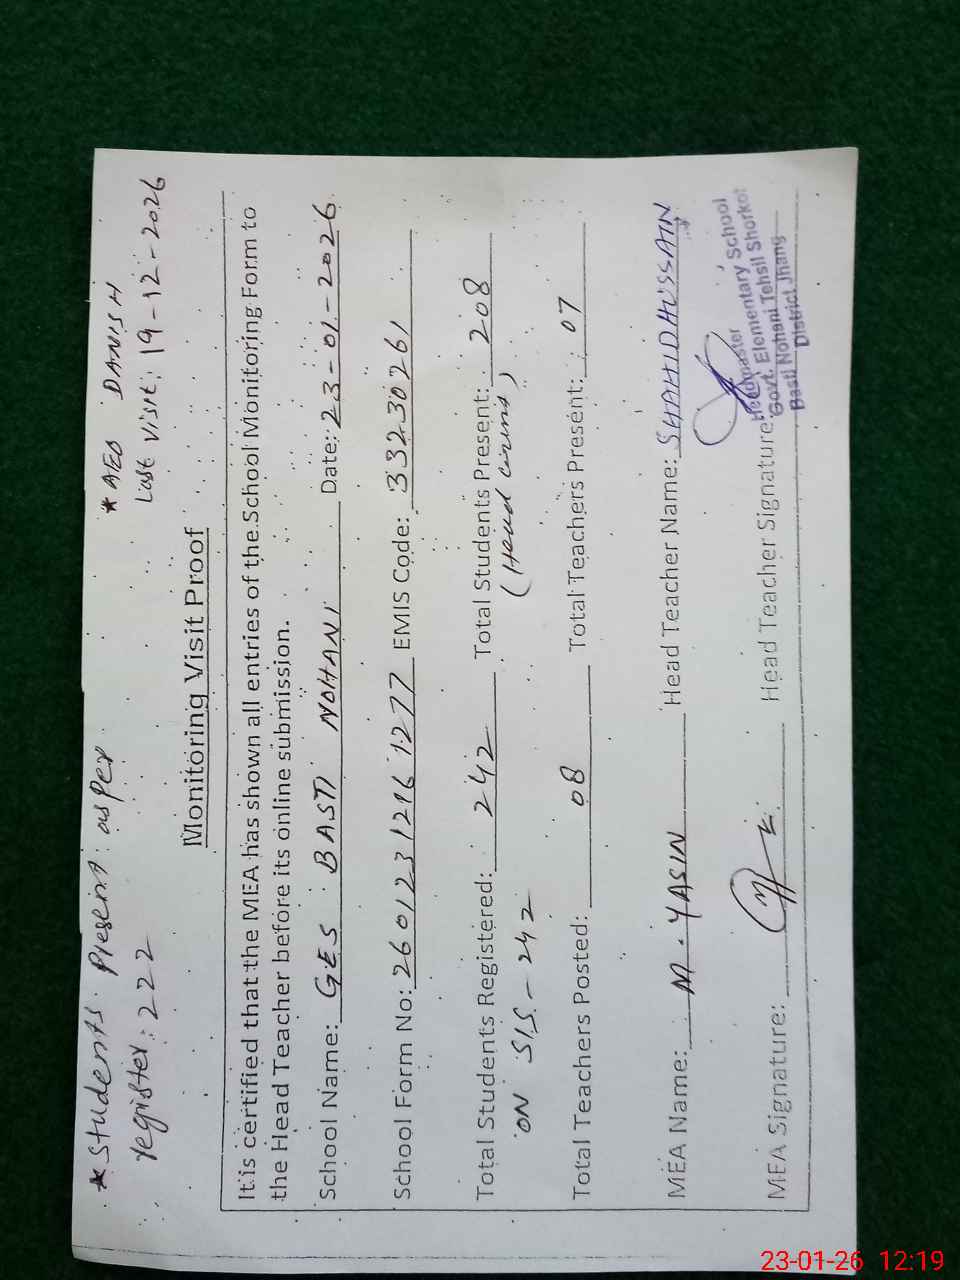 * Students Present as per
register: 222
* AEO DANISH
Last Visit: 19-12-2026
Monitoring Visit Proof
It is certified that the MEA has shown all entries of the School Monitoring Form to
the Head Teacher before its online submission.
School Name: GES BASTI NOHANI Date: 23-01-2026
School Form No: 26012312161277 EMIS Code: 33230261
Total Students Registered: 242 Total Students Present: 208
ON SIS - 242 (Head Count)
Total Teachers Posted: 08 Total Teachers Present: 07
MEA Name: M. YASIN Head Teacher Name: SHAHID HUSSAIN
MEA Signature: Head Teacher Signature:
Headmaster
Govt. Elementary School
Basti Nohani Tehsil Shorkot
District Jhang
23-01-26 12:19